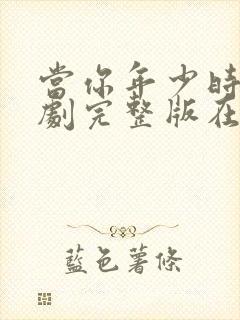 當你年少時
劇完整版在
藍色薯條